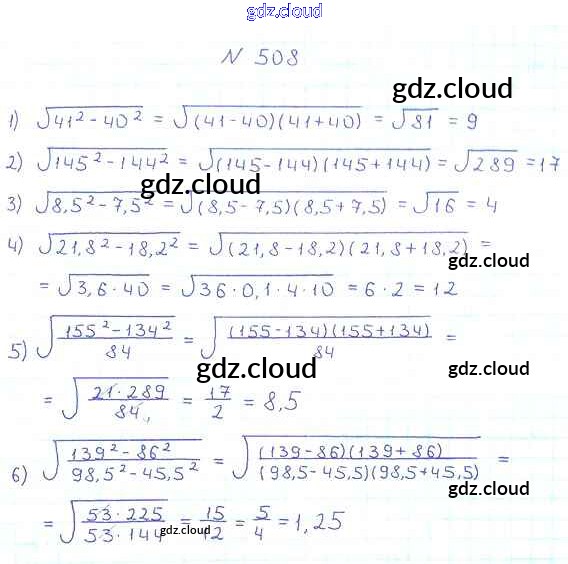 gdz.cloud
N 508
gdz.cloud
1) √(41² - 40²) = √((41-40)(41+40)) = √81 = 9
2) √(145² - 144²) = √((145-144)(145+144)) = √289 = 17
gdz.cloud
3) √(8,5² - 7,5²) = √((8,5-7,5)(8,5+7,5)) = √16 = 4
4) √(21,8² - 18,2²) = √((21,8-18,2)(21,8+18,2)) =
gdz.cloud
= √(3,6·40) = √(36·0,1·4·10) = 6·2 = 12
5) √((155² - 134²)/84) = √((155-134)(155+134)/84) =
gdz.cloud gdz.cloud
= √(21·289/84) = 17/2 = 8,5
6) √((139² - 86²)/(98,5² - 45,5²)) = √((139-86)(139+86)/(98,5-45,5)(98,5+45,5)) =
gdz.cloud
= √(53·225/53·144) = 15/12 = 5/4 = 1,25
gdz.cloud